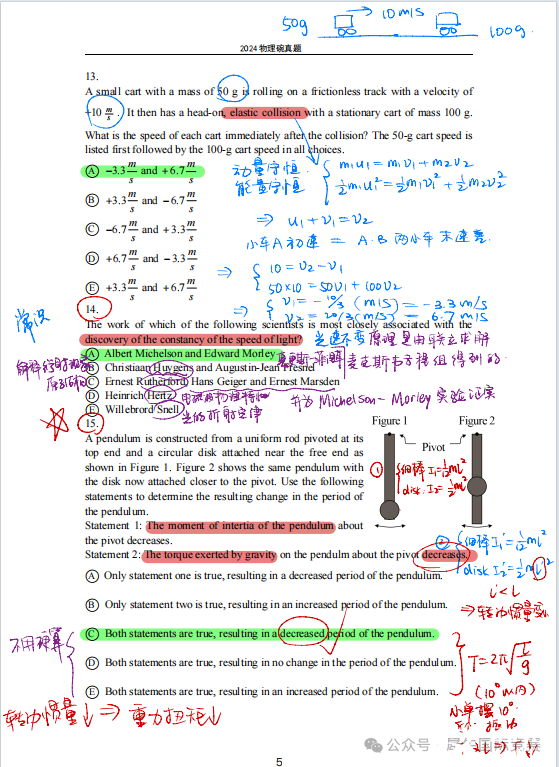 50g
10m/s
100g.
2024 物理碗真题
13.
A small cart with a mass of 50 g is rolling on a frictionless track with a velocity of
+10 m/s . It then has a head-on, elastic collision with a stationary cart of mass 100 g.
What is the speed of each cart immediately after the collision? The 50-g cart speed is
listed first followed by the 100-g cart speed in all choices.
Ⓐ −3.3 m/s and +6.7 m/s
Ⓑ +3.3 m/s and −6.7 m/s
Ⓒ −6.7 m/s and +3.3 m/s
Ⓓ +6.7 m/s and −3.3 m/s
Ⓔ +3.3 m/s and +6.7 m/s
动量守恒
能量守恒
m₁u₁ = m₁v₁ + m₂v₂
½m₁u₁² = ½m₁v₁² + ½m₂v₂²
⇒ u₁ + v₁ = v₂
小车A初速 = A·B两小车末速差.
⇒ 10 = v₂ − v₁
50×10 = 50v₁ + 100v₂
⇒ v₁ = −10/3 (m/s) = −3.3 m/s
v₂ = 20/3 (m/s) = 6.7 m/s
常识
14.
The work of which of the following scientists is most closely associated with the
discovery of the constancy of the speed of light?
Ⓐ Albert Michelson and Edward Morley
Ⓑ Christiaan Huygens and Augustin-Jean Fresnel
Ⓒ Ernest Rutherford Hans Geiger and Ernest Marsden
Ⓓ Heinrich Hertz
Ⓔ Willebrord Snell
光速不变原理是由
麦克斯韦方程组得到的.
并为 Michelson-Morley 实验证实
光的折射定律
15.
A pendulum is constructed from a uniform rod pivoted at its
top end and a circular disk attached near the free end as
shown in Figure 1. Figure 2 shows the same pendulum with
the disk now attached closer to the pivot. Use the following
statements to determine the resulting change in the period of
the pendulum.
Figure 1
Figure 2
Pivot
① 细棒 I₁=½ml²
disk. I₂=½ml²
Statement 1: The moment of inertia of the pendulum about
the pivot decreases.
Statement 2: The torque exerted by gravity on the pendulm about the pivot decreases.
② 细棒 I₁'=½ml²
disk I₂'=½ml'²
l'<l
⇒ 转动惯量变小
Ⓐ Only statement one is true, resulting in a decreased period of the pendulum.
Ⓑ Only statement two is true, resulting in an increased period of the pendulum.
Ⓒ Both statements are true, resulting in a decreased period of the pendulum.
Ⓓ Both statements are true, resulting in no change in the period of the pendulum.
Ⓔ Both statements are true, resulting in an increased period of the pendulum.
不用硬算
转动惯量↓ ⇒ 重力扭矩↓
T=2π√(l/g)
(10°以内)
小单摆10°
公众号
5